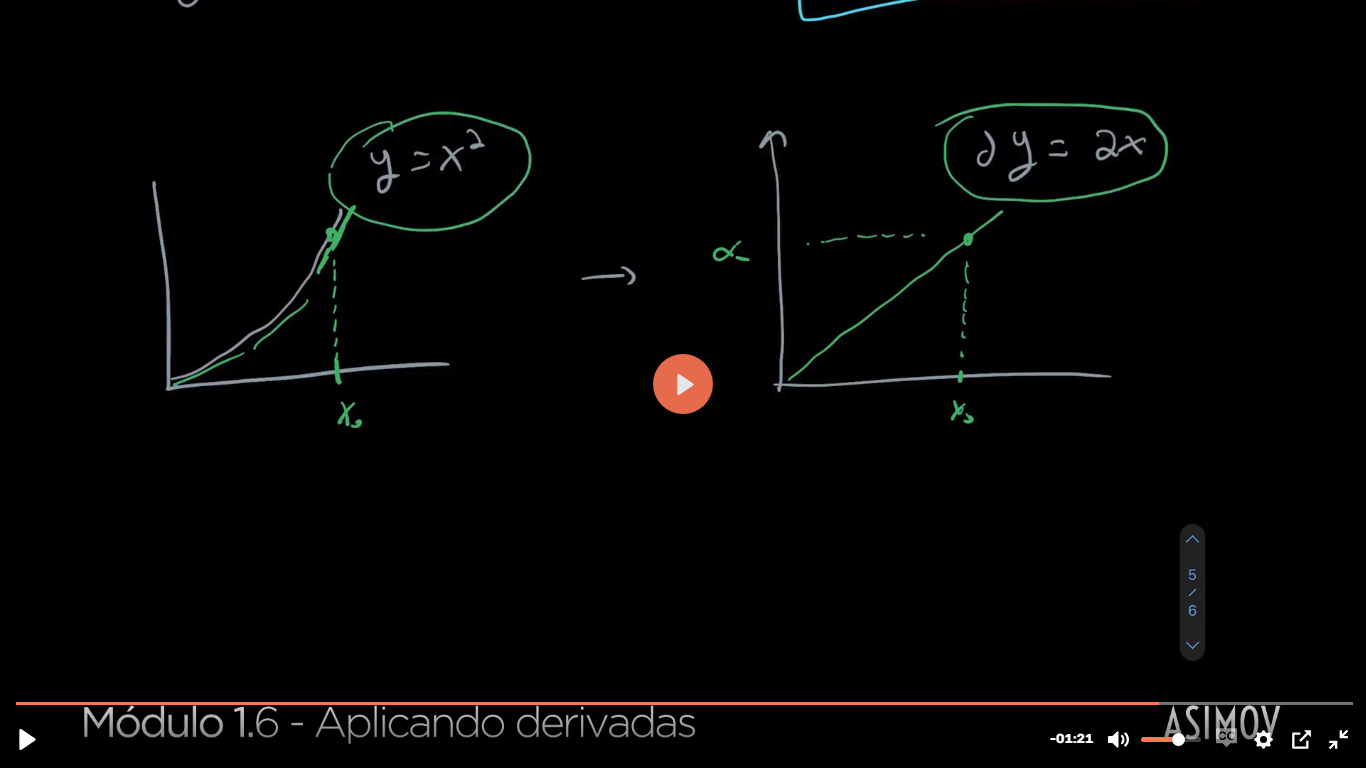 y = x²
∂y = 2x
α
x₀
x₀
5
/
6
Módulo 1.6 - Aplicando derivadas
ASIMOV
-01:21
CC